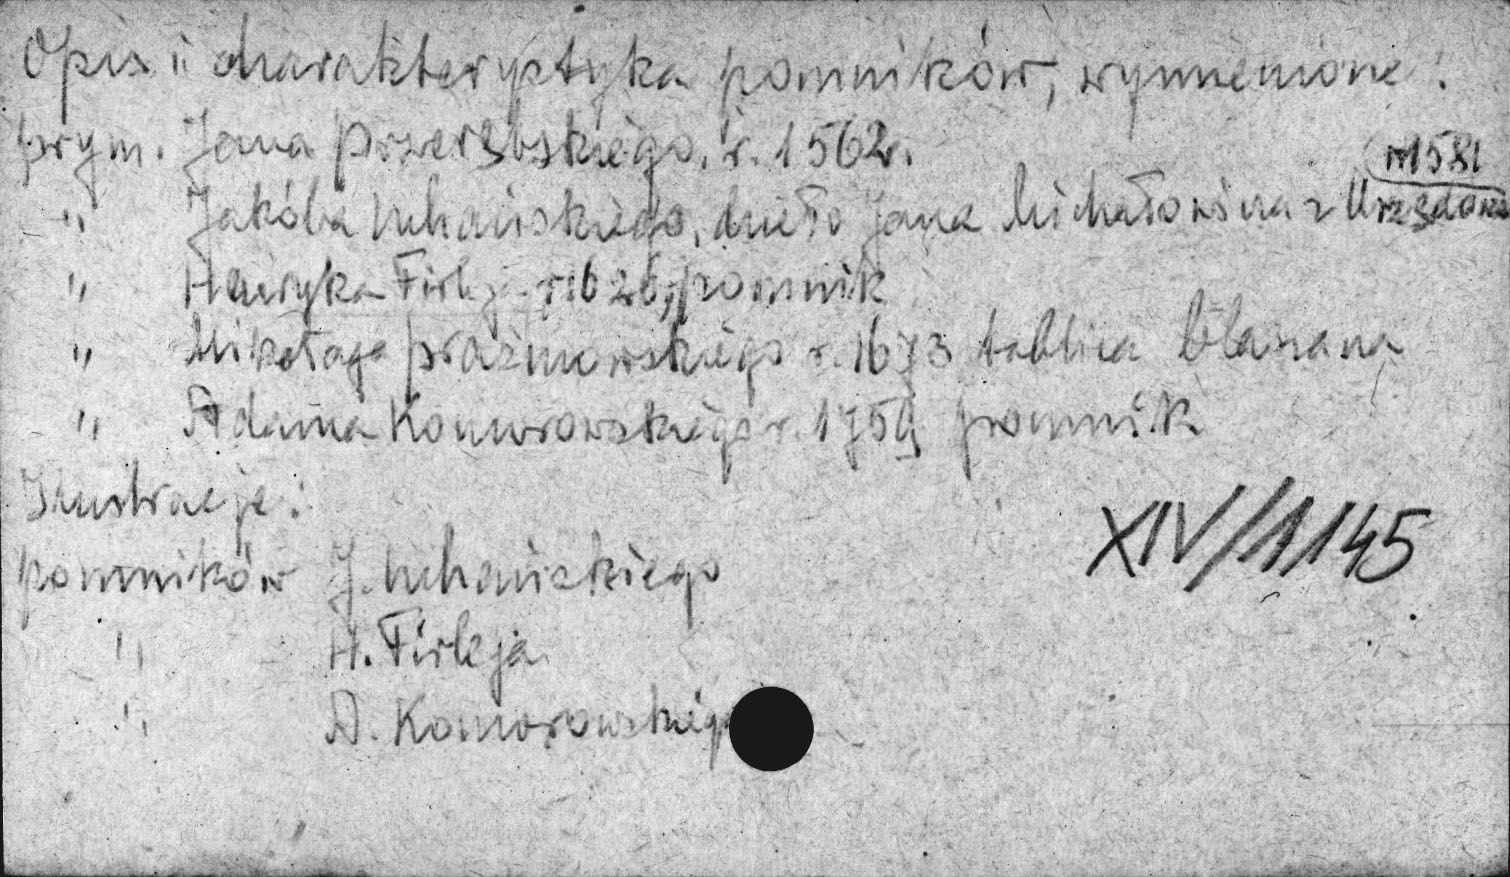 Opis i charakterystyka pomników, wymienione:
prym. Jana Przerębskiego, r. 1562r.
" Jakóba Uchańskiego, dzieło Jana Michałowina z Urzędowa
r 1581
" Henryka Firleja r. 1626, pomnik
" Mikołaja Prażmowskiego r. 1673 tablica blaszana
" Adama Komorowskiego r. 1759 pomnik
Ilustracje:
pomników J. Uchańskiego
XIV/1145
" H. Firleja
" A. Komorowskiego